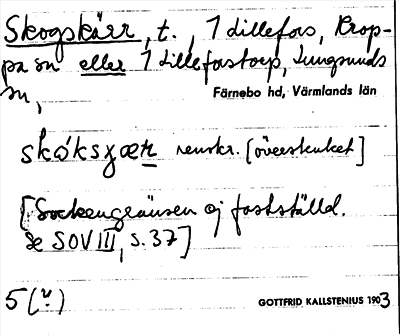 Skogskärr, t., 1 dillefors, Krop-
pa sn eller 1 dilleforstorp, Lungsunds
sn,
Färnebo hd, Värmlands län
skóksʒæṟ renskr. [överstruket]
[Sockengränsen ej fastställd.
Se SOV III, s. 37]
5 (v)
GOTTFRID KALLSTENIUS 1903